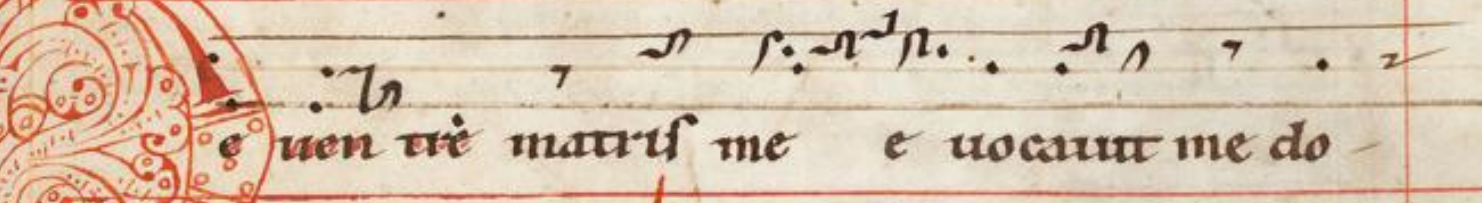 De uen tre matriſ me e uocauit me do